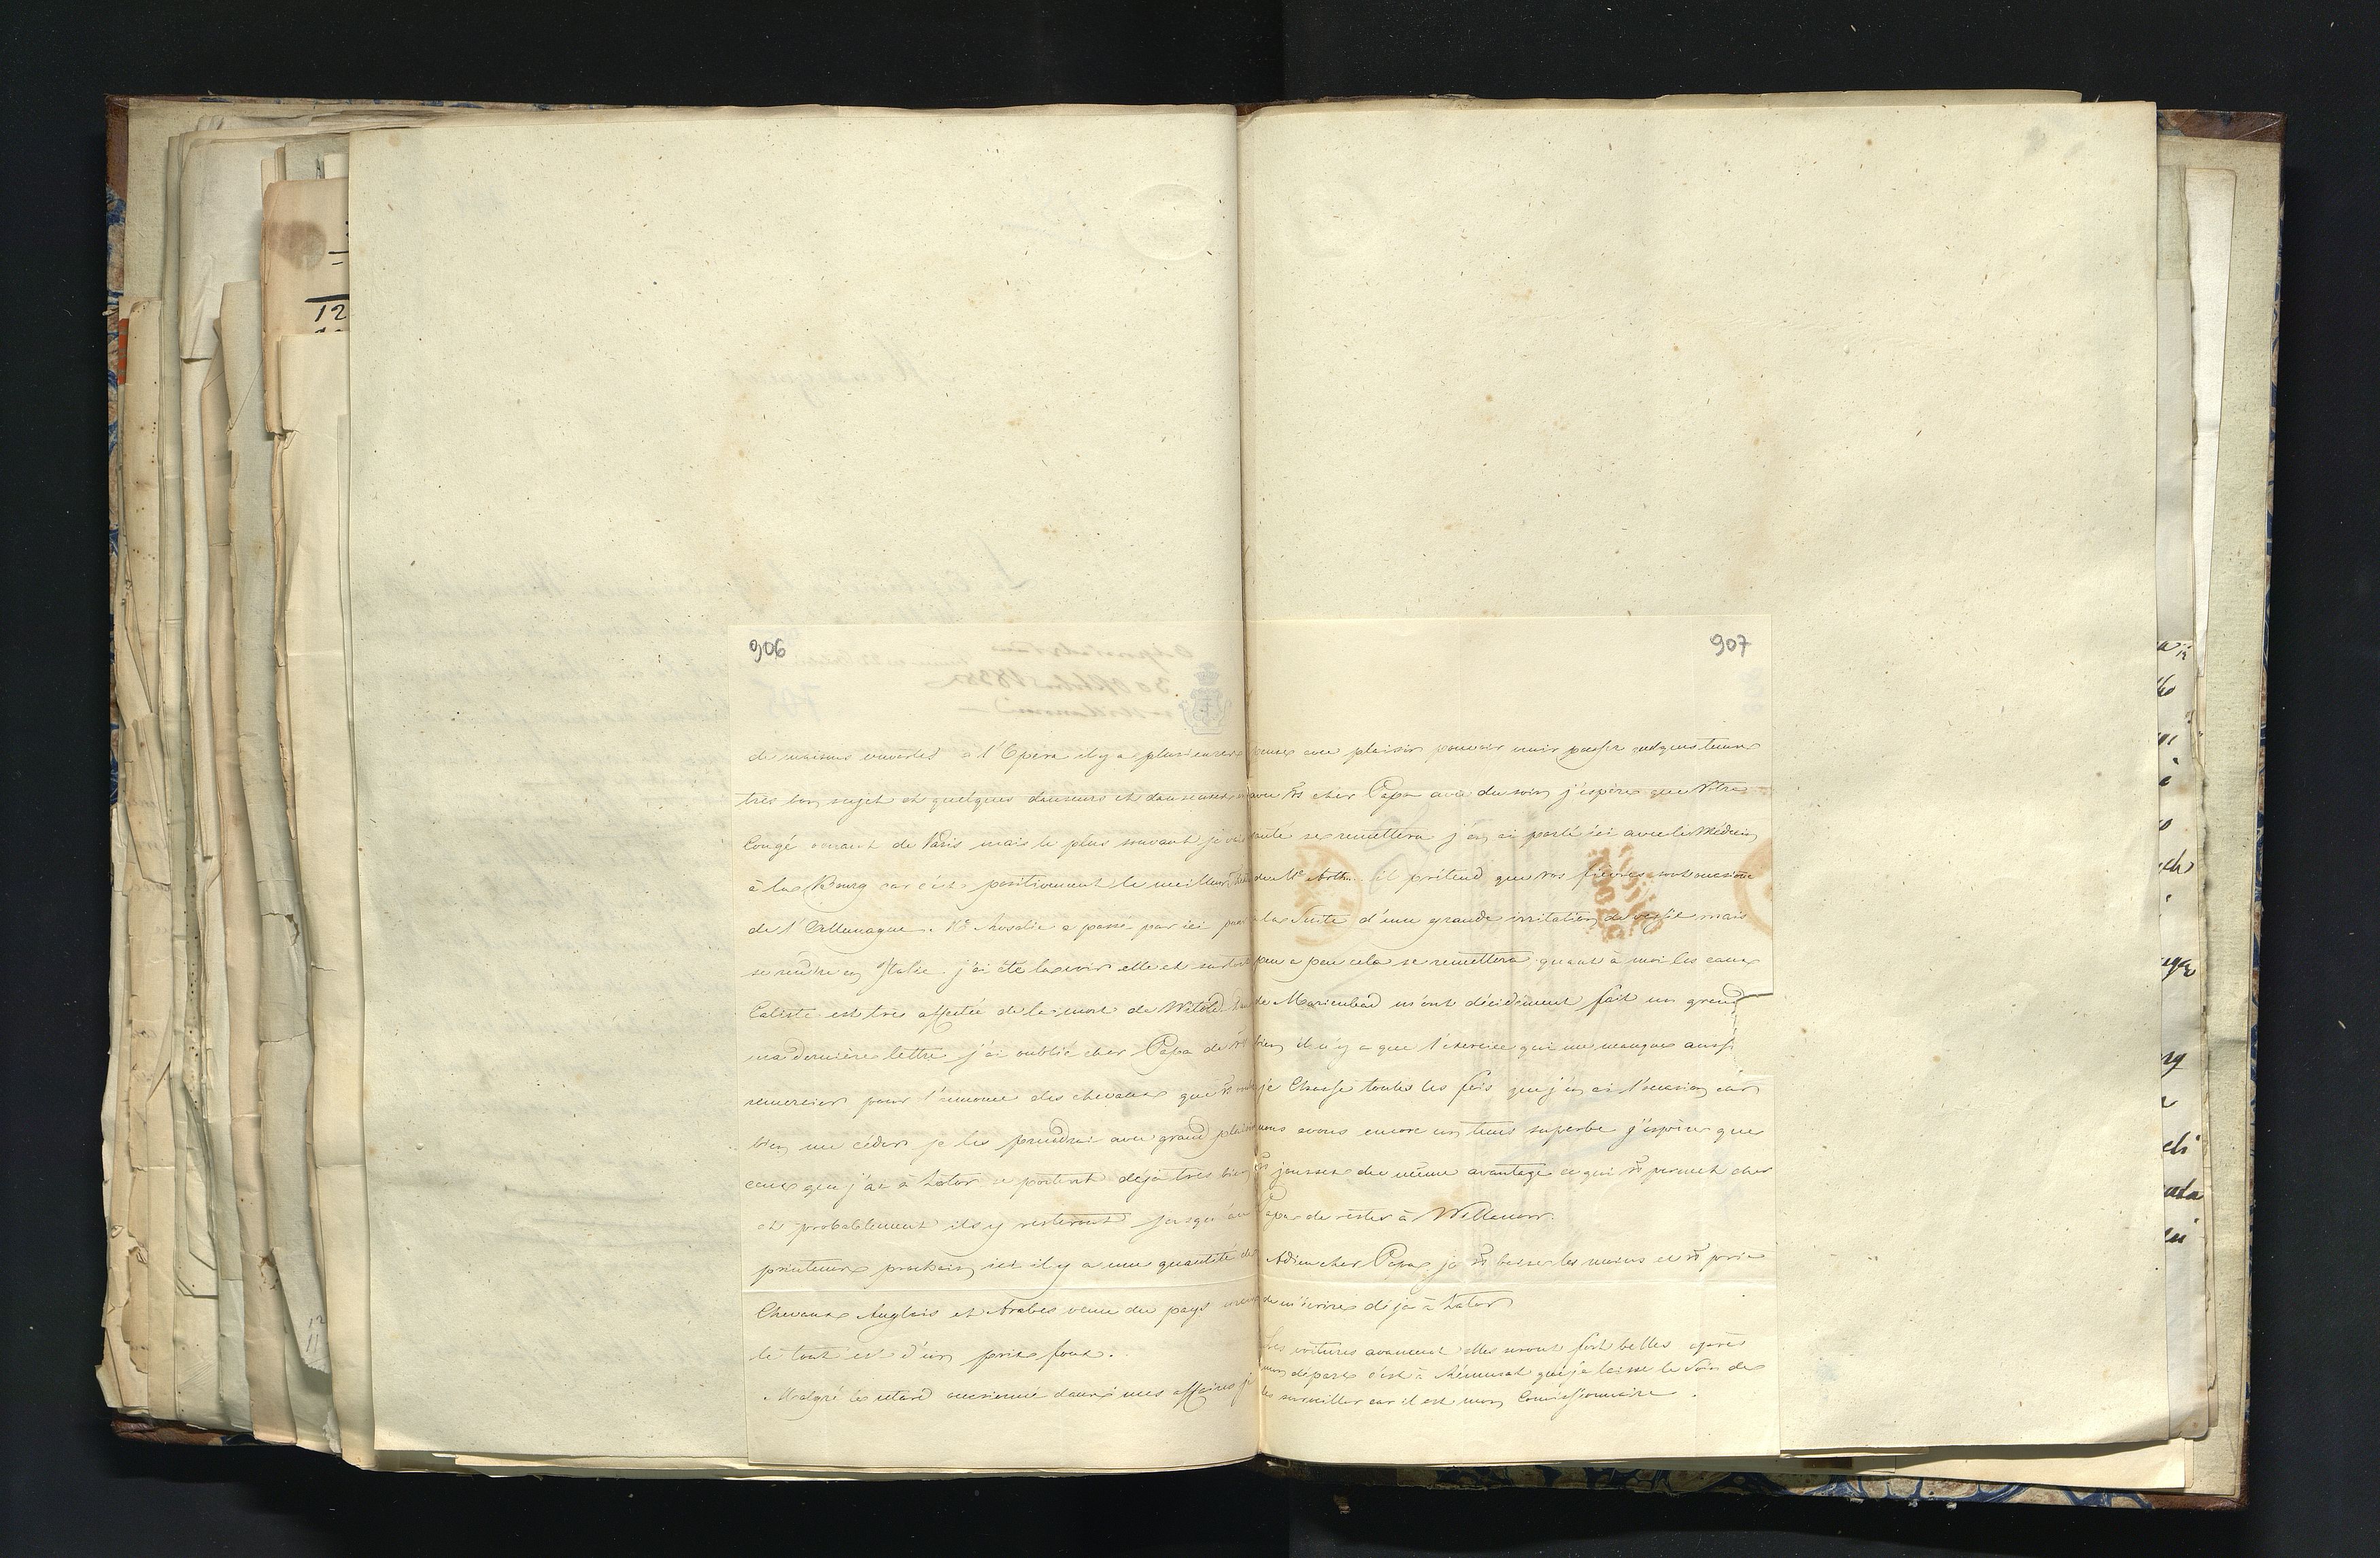 906
de maisons ouvertes à l'Opéra il y a plusieures
très bon sujet et quelques danseurs et danseuses
Congé venant de Paris mais le plus souvant je vais
à la Bourg car c'est positivement le meilleur
de l'Allemagne. Me Rosalie a passé par ici pour
se rendre en Italie j'ai été la voir elle et surtout
Caliste est très affectée de la mort de Witold. Dans
ma dernière lettre j'ai oublié cher Papa de vs
remercier pour l'annonce des chevaux que vs
bien me céder je les prendrai avec grand plaisir
ceux que j'ai à Zator se portent déjà très bien
et probablement ils y resteront jusqu'au
printems prochain ici il y a une quantité de
Chevaux Anglais et Arabes venu du pays
le tout est d'un prix foux.
Malgré le retard occasionné dans mes affaires je
907
pense avec plaisir pouvoir venir passer quelques tems
avec vs cher Papa avec du soin j'espère que Votre
santé se remettera j'en ai parlé ici avec le Médecin
de Me Arth. il prétend que vos fièvres sont
à la Suite d'une grande irritation de vessie mais
peu a peu cela se remettera quant à moi les eaux
de Marienbad m'ont décidément fait un grand
bien il n'y a que l'exercice qui me manque aussi
je Chasse toutes les fois que j'en ai l'occasion car
nous avons encore un tems superbe j'espère que
vs jouissez du même avantage ce qui vs permet cher
Papa de rester à Willanow.
Adieu cher Papa je vs baise les mains et vs prie
de m'écrire déjà à Zator
Les voitures avancent elles seront fort belles après
mon départ c'est à que je laisse le Soin de
les surveiller car il est mon Comissionnaire.